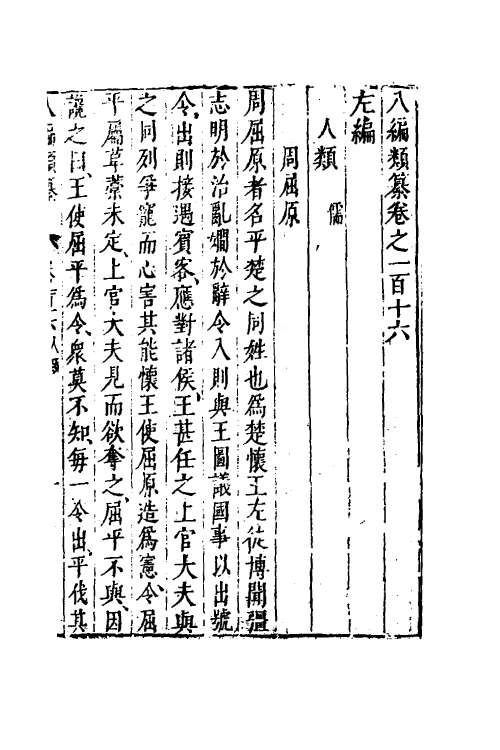 八編類纂卷之一百十六
左編
人類 儒
周屈原
周屈原者名平楚之同姓也爲楚懷王左徒博聞彊
志明於治亂嫺於辭令入則與王圖議國事以出號
令、出則接遇賓客、應對諸侯、王甚任之上官大夫與
之同列爭寵而心害其能懷王使屈原造爲憲令屈
平屬草藁未定、上官大夫見而欲奪之、屈平不與、因
讒之曰、王使屈平爲令、衆莫不知、每一令出、平伐其
八編類纂